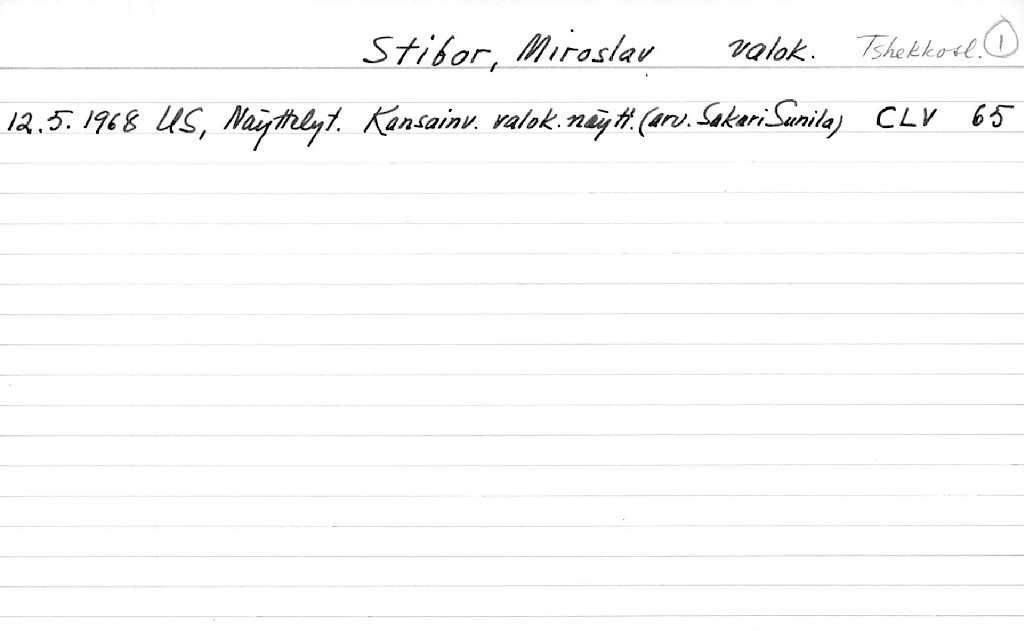 Stibor, Miroslav valok. Tshekkosl. 1
12.5.1968 US, Näyttelyt. Kansainv. valok. näytt. (arv. Sakari Sunila) CLV 65